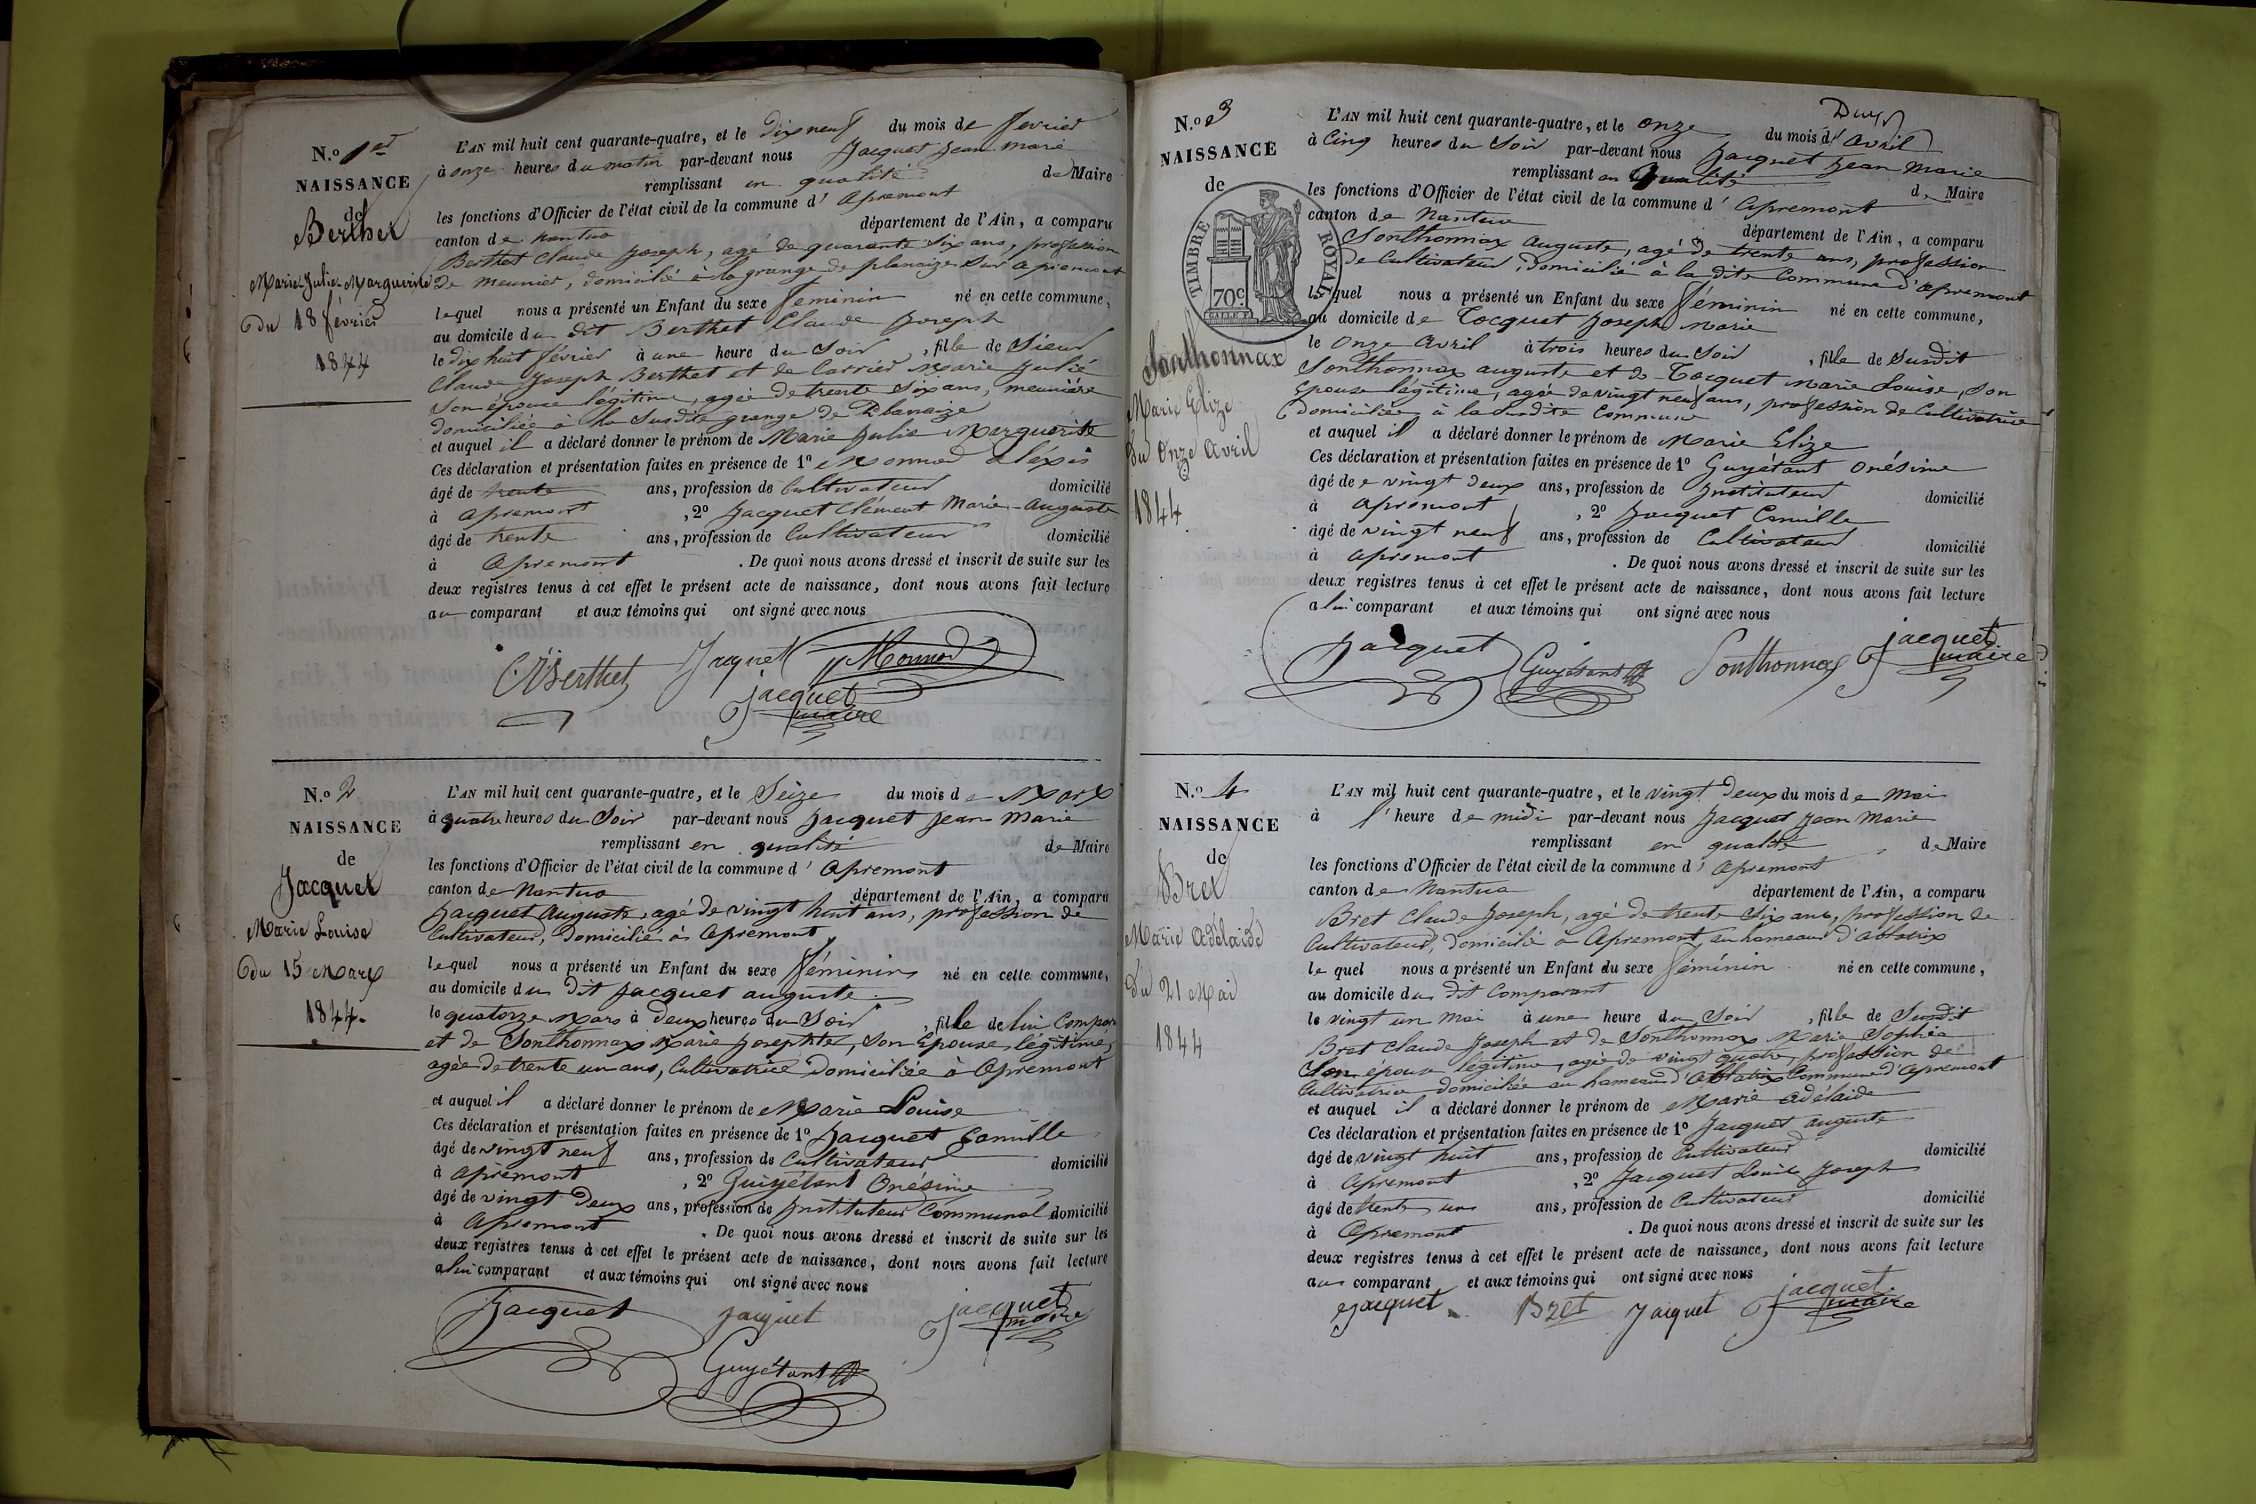 N.o 1er
NAISSANCE
de
Berthet
Marie Julie Marguerite
du 18 février
1844
L'AN mil huit cent quarante-quatre, et le dix neuf du mois de fevrier
à onze heures du matin par-devant nous Jacquet Jean Marie
remplissant en qualité de Maire
les fonctions d'Officier de l'état civil de la commune d'Apremont
canton de Nantua département de l'Ain, a comparu
Berthet Claude Joseph, agé de quarante six ans, profession
de meunier, domicilié à la grange de planaize sur apremont
lequel nous a présenté un Enfant du sexe féminin né en cette commune,
au domicile du dit Berthet Claude Joseph
le dix huit février à une heure du soir, fille de Sieur
Claude Joseph Berthet et de Carrier Marie Julie
son épouse légitime, agée de trente six ans, meunière
domiciliée à la susdite grange de Planaize
et auquel il a déclaré donner le prénom de Marie Julie Marguerite
Ces déclaration et présentation faites en présence de 1o Monnod aléxis
âgé de trente ans, profession de Cultivateur domicilié
à apremont, 2o Jacquet Clément Marie-Auguste
âgé de trente ans, profession de Cultivateur domicilié
à Apremont. De quoi nous avons dressé et inscrit de suite sur les
deux registres tenus à cet effet le présent acte de naissance, dont nous avons fait lecture
au comparant et aux témoins qui ont signé avec nous
Berthet Jacquet Monnod
jacquet
maire
N.o 2
NAISSANCE
de
Jacquet
Marie Louise
du 15 Marx
1844.
L'AN mil huit cent quarante-quatre, et le Seize du mois de Marx
à quatre heures du Soir par-devant nous Jacquet Jean Marie
remplissant en qualité de Maire
les fonctions d'Officier de l'état civil de la commune d'Apremont
canton de Nantua département de l'Ain, a comparu
Jacquet Auguste, agé de vingt huit ans, profession de
Cultivateur, domicilié à Apremont
lequel nous a présenté un Enfant du sexe féminin né en cette commune,
au domicile du dit Jacquet auguste
le quatorze Mars à deux heures du Soir, fille de lui Compar
et de Sonthonnax Marie Josephte, son Epouse légitime,
agée de trente un ans, Cultivatrice domiciliée à Apremont
et auquel il a déclaré donner le prénom de Marie Louise
Ces déclaration et présentation faites en présence de 1o Jacquet Camille
âgé de vingt neuf ans, profession de Cultivateur domicilié
à apremont, 2o Guyétant Onésime
âgé de vingt deux ans, profession de Instituteur Communal domicilié
à Apremont. De quoi nous avons dressé et inscrit de suite sur les
deux registres tenus à cet effet le présent acte de naissance, dont nous avons fait lecture
a lui comparant et aux témoins qui ont signé avec nous
Jacquet jacquet jacquet
maire
Guyétant
N.o 3
NAISSANCE
de
TIMBRE ROYAL
70c
Sonthonnax
Marie Elize
du Onze Avril
1844
L'AN mil huit cent quarante-quatre, et le onze du mois d'avril
à Cinq heures du Soir par-devant nous Jacquet Jean Marie
remplissant en Qualité de Maire
les fonctions d'Officier de l'état civil de la commune d'Apremont
canton de Nantua département de l'Ain, a comparu
Sonthonnax Auguste, agé de trente ans, profession
de Cultivateur, domicilié à la dite Commune d'Apremont
lequel nous a présenté un Enfant du sexe féminin né en cette commune,
au domicile de Tocquet Joseph Marie
le Onze Avril à trois heures du Soir, fille de Susdit
Sonthonnax auguste et de Tocquet Marie Louise, son
épouse légitime, agée de vingt neuf ans, profession de Cultivatrice
domiciliée à la susdite Commune
et auquel il a déclaré donner le prénom de Marie Elize
Ces déclaration et présentation faites en présence de 1o Guyétant onésime
âgé de vingt deux ans, profession de Instituteur domicilié
à Apremont, 2o Jacquet Camille
âgé de vingt neuf ans, profession de Cultivateur domicilié
à Apremont. De quoi nous avons dressé et inscrit de suite sur les
deux registres tenus à cet effet le présent acte de naissance, dont nous avons fait lecture
a lui comparant et aux témoins qui ont signé avec nous
Jacquet Guyétant Sonthonnax jacquet
maire
N.o 4
NAISSANCE
de
Bret
Marie adélaide
du 21 Mai
1844
L'AN mil huit cent quarante-quatre, et le vingt deux du mois de Mai
à l'heure de midi par-devant nous Jacquet Jean Marie
remplissant en qualité de Maire
les fonctions d'Officier de l'état civil de la commune d'Apremont
canton de Nantua département de l'Ain, a comparu
Bret Claude Joseph, agé de trente six ans, profession de
Cultivateur, domicilié à Apremont, au hameau d'
lequel nous a présenté un Enfant du sexe féminin né en cette commune,
au domicile du dit Comparant
le vingt un Mai à une heure du Soir, fille de Susdit
Bret Claude Joseph et de Sonthonnax Marie Sophie
Son épouse légitime, agée de vingt quatre, profession de
Cultivatrice domiciliée au hameau d' Commune d'Apremont
et auquel il a déclaré donner le prénom de Marie adélaide
Ces déclaration et présentation faites en présence de 1o Jacquet auguste
âgé de vingt huit ans, profession de Cultivateur domicilié
à Apremont, 2o Jacquet Louis Joseph
âgé de trente un ans, profession de Cultivateur domicilié
à Apremont. De quoi nous avons dressé et inscrit de suite sur les
deux registres tenus à cet effet le présent acte de naissance, dont nous avons fait lecture
au comparant et aux témoins qui ont signé avec nous
jacquet Bret Jacquet jacquet
maire